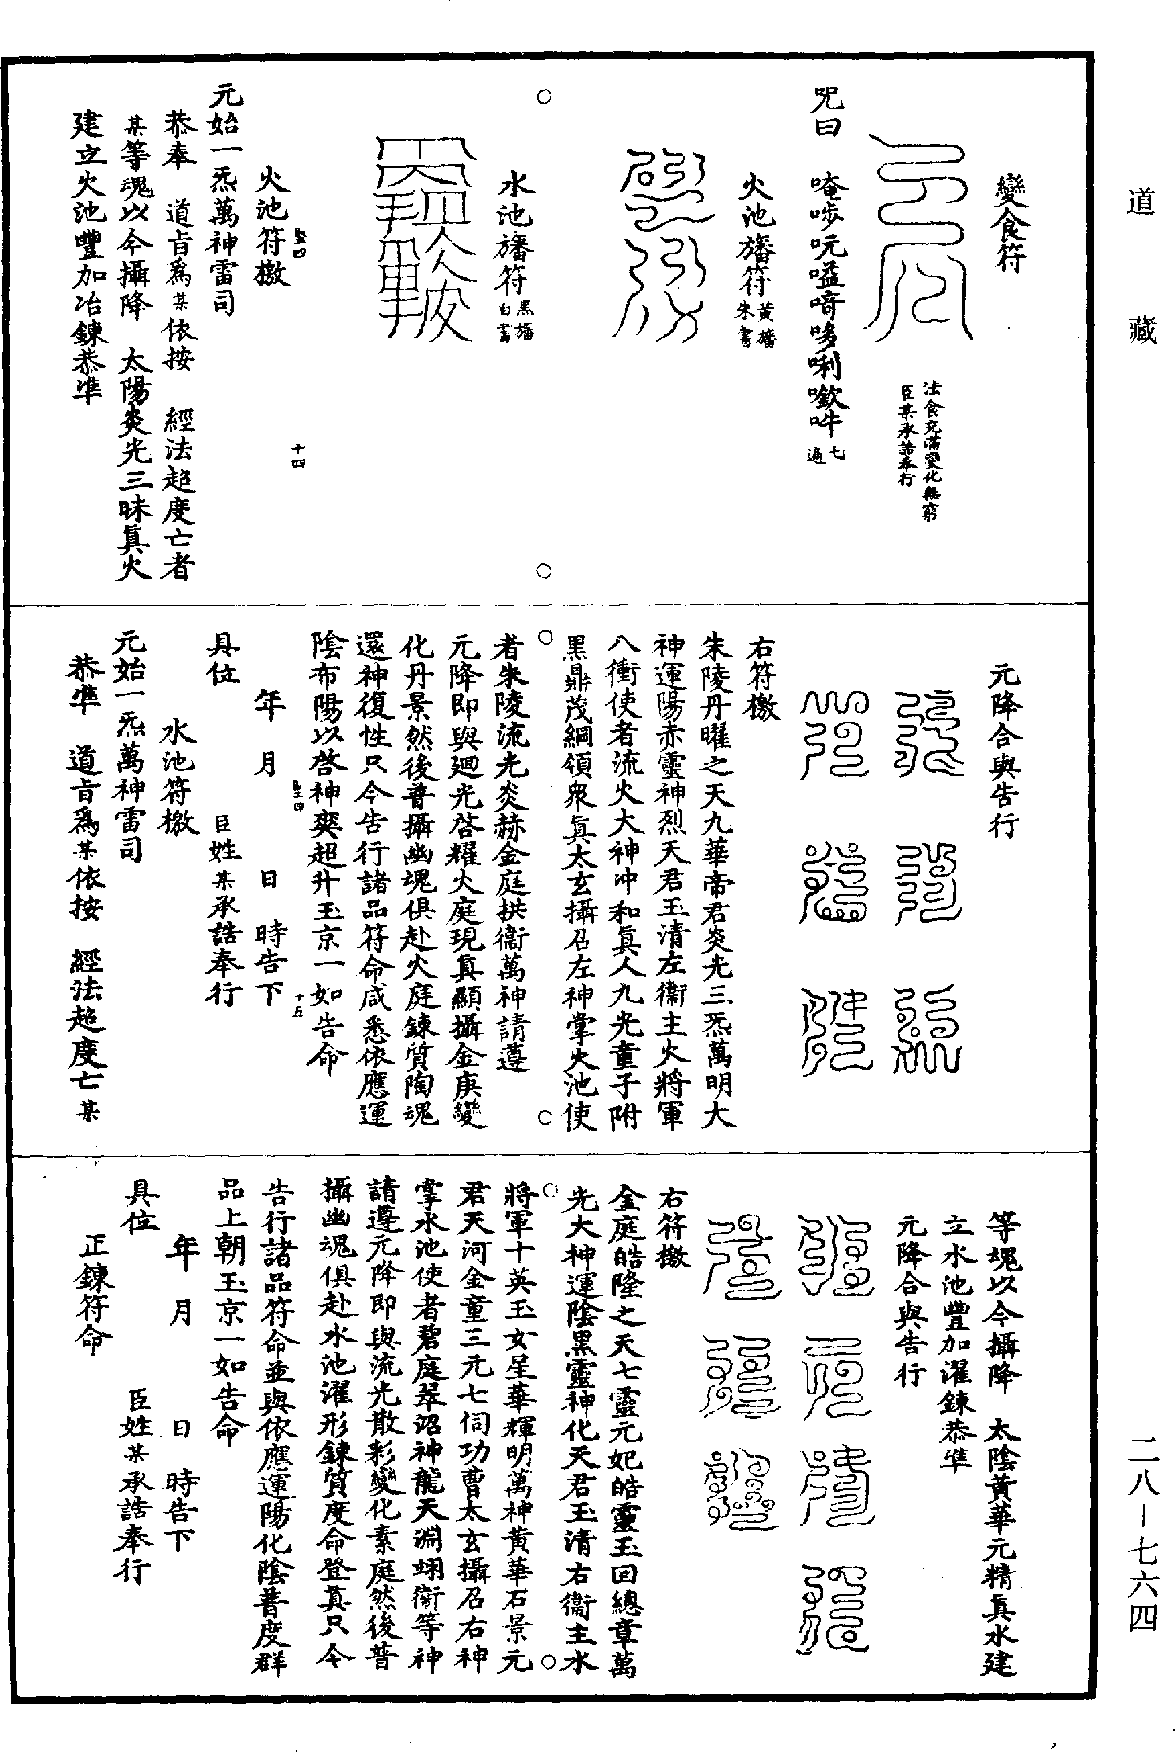 道藏
變食符
法食充滿變化無窮
臣某承誥奉行
咒曰　唵㖫吭嗌𠹌哆唎㘕吽七遍
火池旛符黃旛朱書
水池旛符黑旛白書
火池符檄
十四
元始一炁萬神雷司
恭奉　道旨爲某依按　經法超度亡者
某等魂以今攝降　太陽炎光三昧眞火
建立火池豐加冶鍊恭準
元降合與告行
右符檄
朱陵丹曜之天九華帝君炎光三炁萬明大
神運陽赤靈神烈天君玉清左衞主火將軍
八衝使者流火大神冲和眞人九光童子附
黑鼎茂綱領衆眞太玄攝召左神掌火池使
者朱陵流光炎赫金庭拱衞萬神請遵
元降即與廻光啓耀火庭現眞顯攝金庚變
化丹景然後普攝幽魂俱赴火庭鍊質陶魂
還神復性只今告行諸品符命咸悉依應運
陰布陽以啓神爽超升玉京一如告命
十五
年　月　　日　時告下
具位　　臣姓某承誥奉行
水池符檄
元始一炁萬神雷司
恭準　道旨爲某依按　經法超度亡某
等魂以今攝降　太陰黃華元精眞水建
立水池豐加濯鍊恭準
元降合與告行
右符檄
金庭皓隆之天七靈元妃皓靈玉回總章萬
光大神運陰黑靈神化天君玉清右衞主水
將軍十英玉女星華輝明萬神黃華石景元
君天河金童三元七伺功曹太玄攝召右神
掌水池使者碧庭翠沼神龍天淵翊衞等神
請遵元降即與流光散彩變化素庭然後普
攝幽魂俱赴水池濯形鍊質度命登眞只今
告行諸品符命並與依應運陽化陰普度群
品上朝玉京一如告命
年　月　　日　時告下
具位　　臣姓某承誥奉行
正鍊符命
二八—七六四